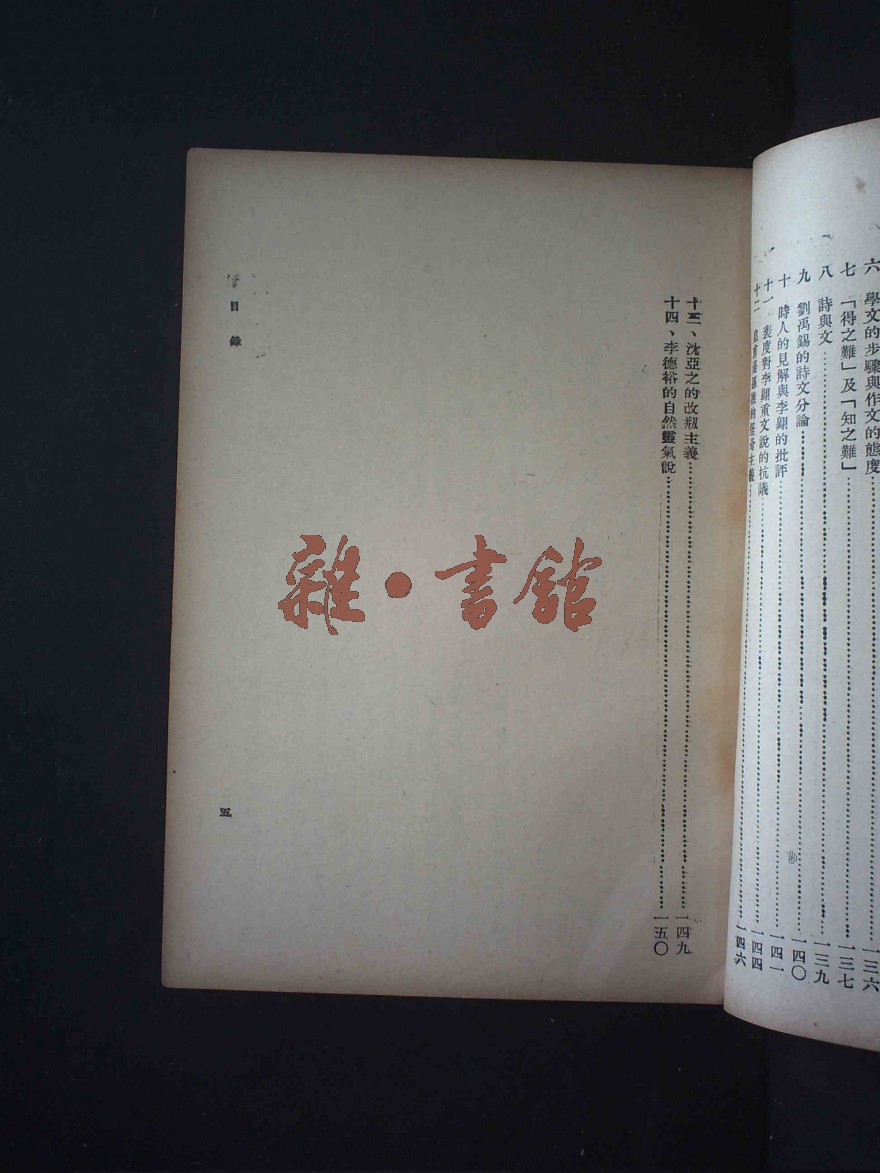 六 學文的步驟與作文的態度……一三六
七 「得之難」及「知之難」……一三七
八 詩與文……一三九
九 劉禹錫的詩文分論……一四〇
十 時人的見解與李翺的批評……一四一
十一 裴度對李翺重文說的抗議……一四四
十二 的怪奇主義……一四六
十三、沈亞之的改剏主義……一四九
十四、李德裕的自然靈氣說……一五〇
目錄
五
雜・書館